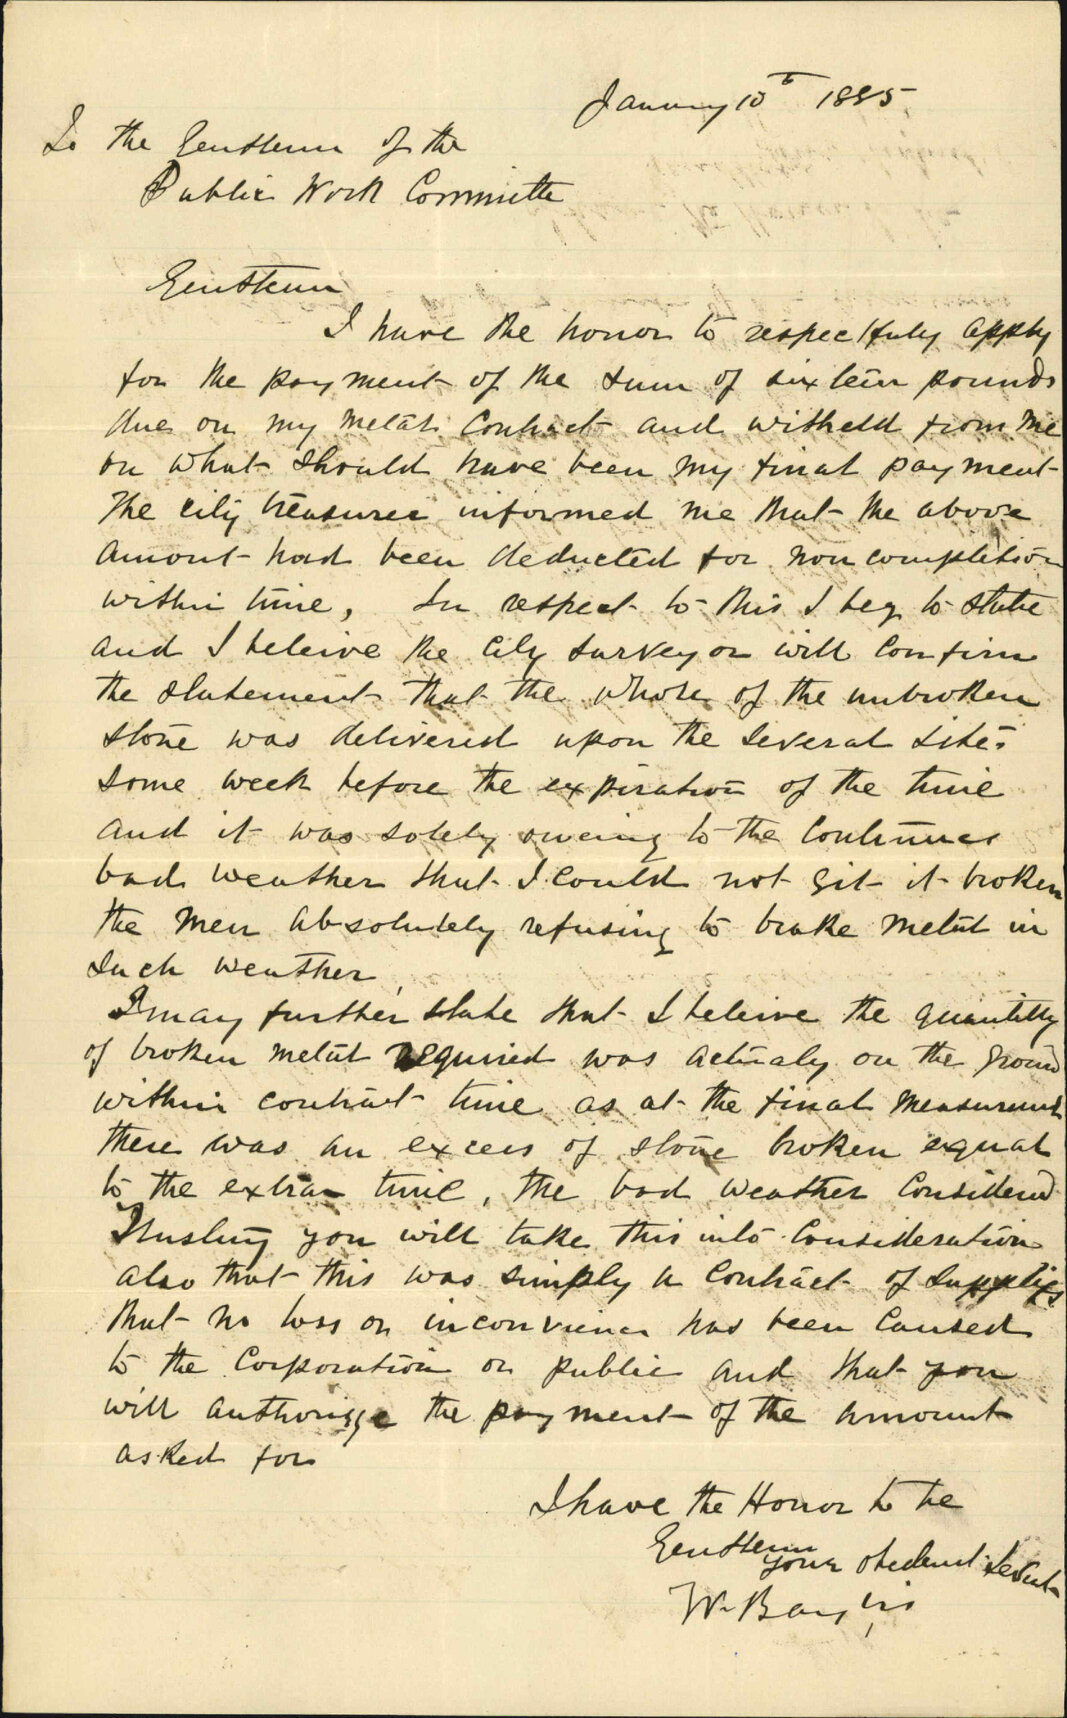 January 10th 1885
To the Gentlemen of the
Public Work Committe
Gentlemen
I have the honor to respectfuly apply
for the payment of the sum of sixteen pounds
due on my metal contract and witheld from me
on what should have been my final payment
The city treasurer informed me that the above
amont had been deducted for non completion
within time, In respect to this I beg to state
and I beleive the City Surveyor will confirm
the statement that the whole of the unbroken
stone was delivered upon the several sites
some week before the expiration of the time
and it was solely oweing to the continues
bad weather that I could not git it broken
the men absolutely refusing to brake metal in
such weather
I may further state that I beleive the quantitty
of broken metal required was actualy on the ground
within contract time as at the final measurment
there was an excess of stone broken equal
to the extra time, the bad weather considered
Trusting you will take this into consideration
also that this was simply a contract of supplies
that no loss or inconvience has been caused
to the Corporation or public and that you
will authorize the payment of the amount
asked for
I have the Honor to be
Gentlemen
your obedient Servant
W. Bay